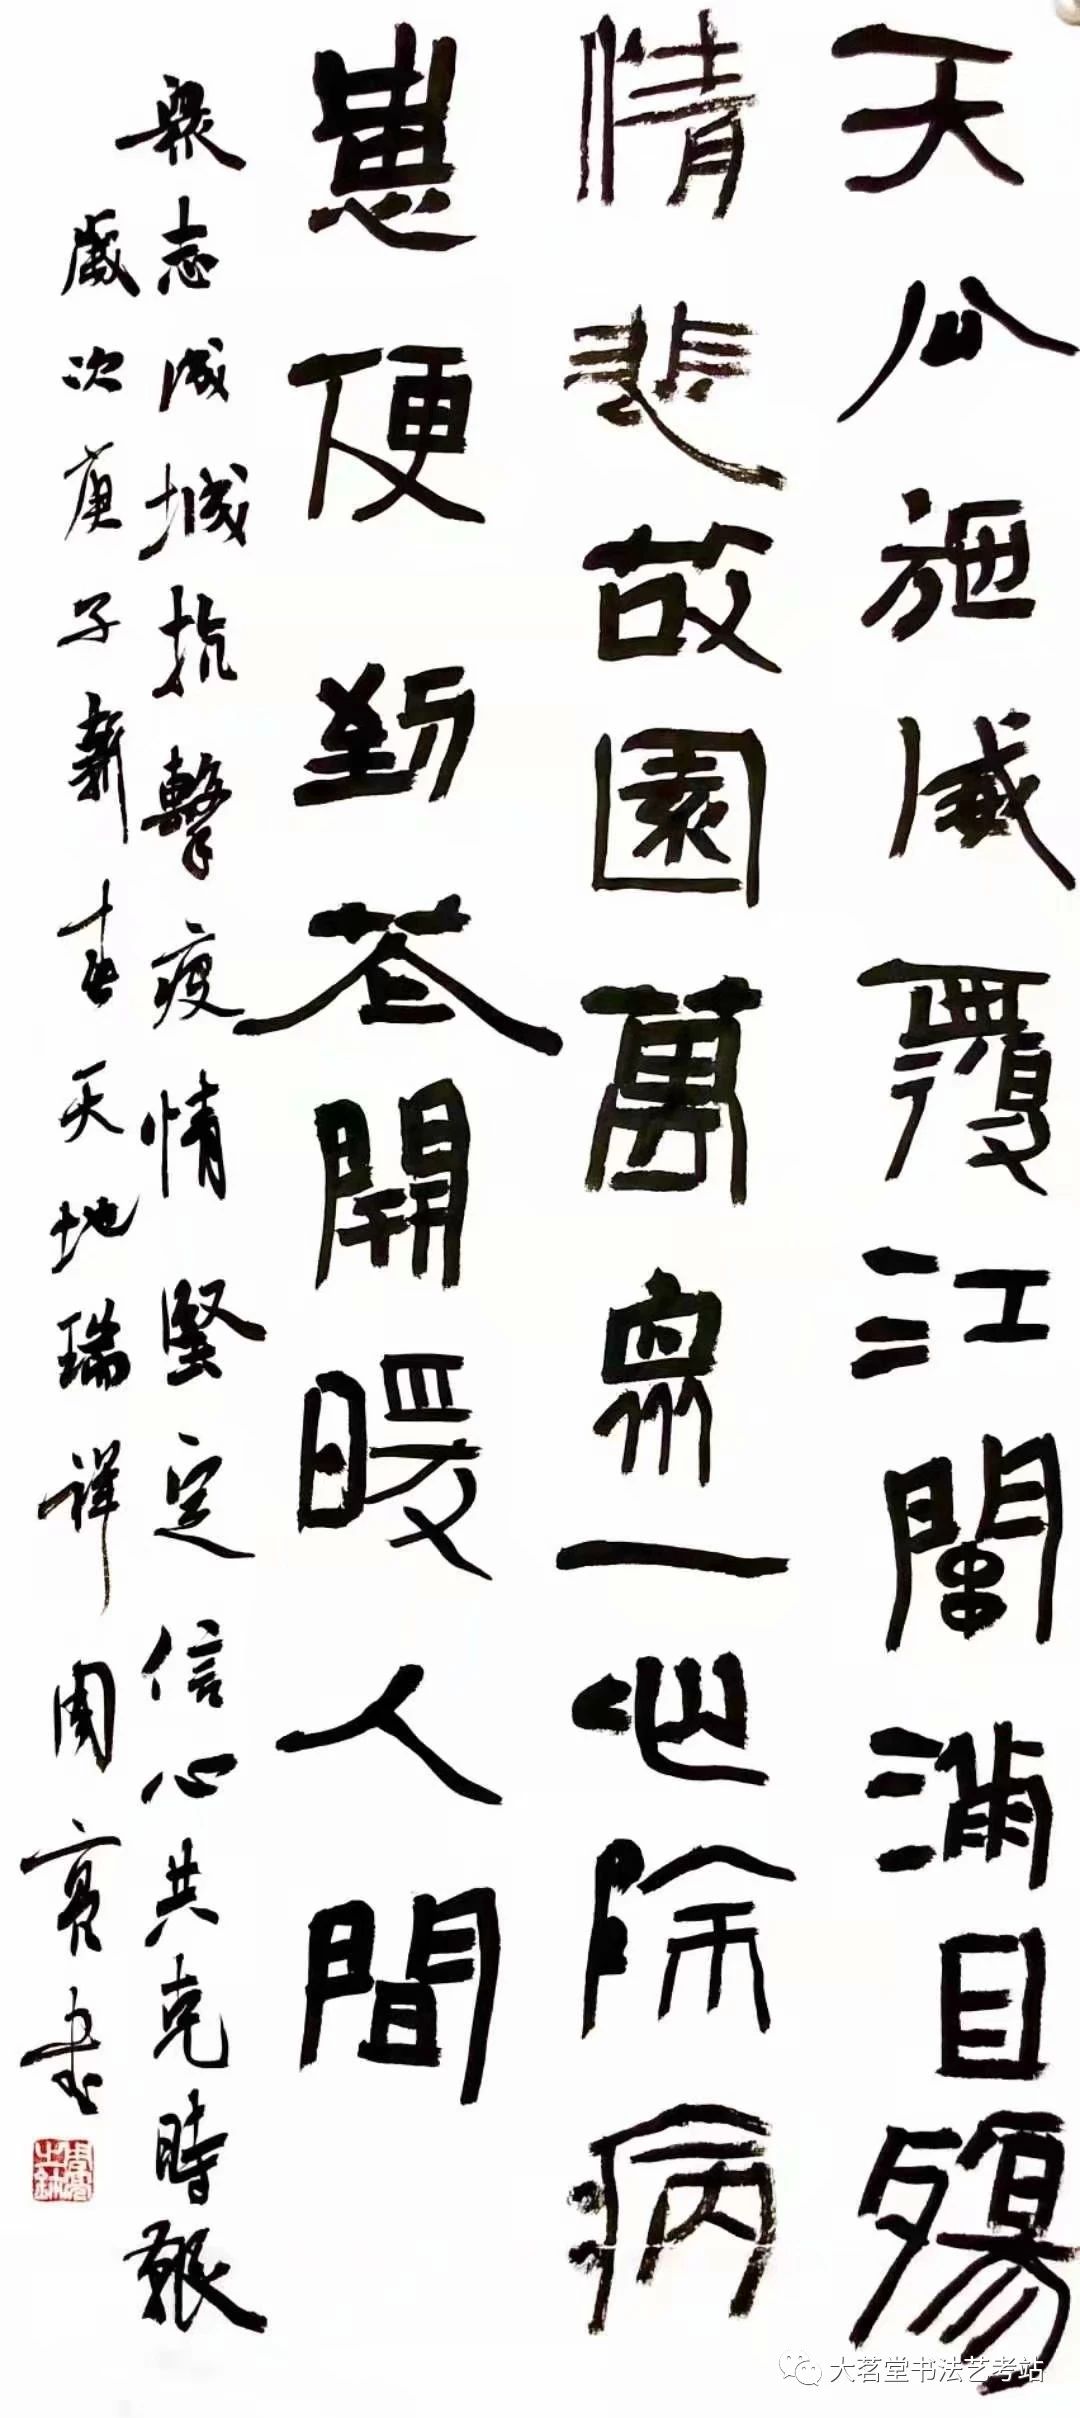 天公施威覆江闌滿目殤
情悲故園萬眾一心除病
患便到花開暖人間
眾志成城抗擊疫情堅定信心共克時艱
歲次庚子新春天地瑞祥周亮書
大茗堂书法艺考站